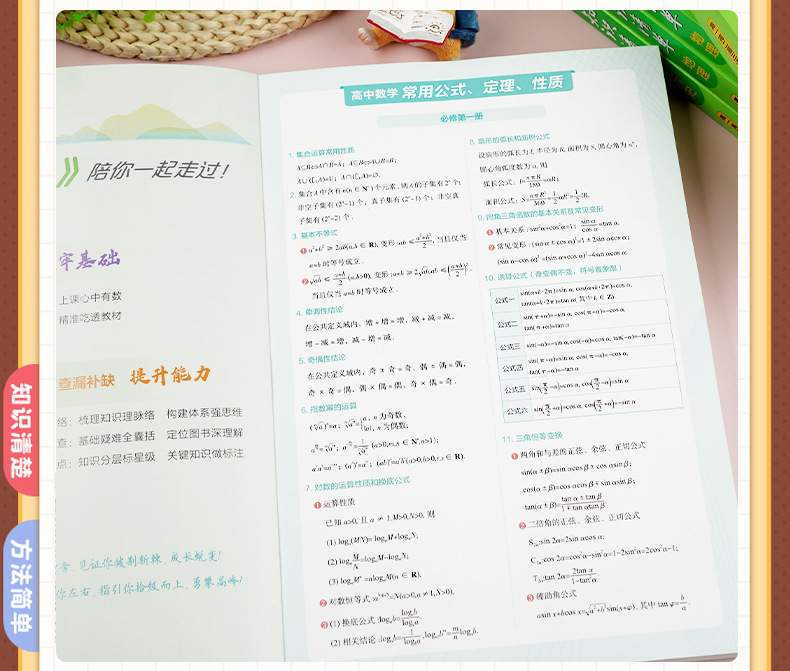 知识清楚
方法简单
陪你一起走过!
牢基础
上课心中有数
精准吃透教材
查漏补缺 提升能力
络：梳理知识理脉络 构建体系强思维
查：基础疑难全囊括 定位图书深理解
点：知识分层标星级 关键知识做标注
音，见证你披荆斩棘，成长蜕变!
你左右，指引你拾级而上，勇攀高峰!
高中数学 常用公式、定理、性质
必修第一册
1. 集合运算常用性质
A⊆B⇔A∩B=A；A⊆B⇔A∪B=B；
A∪(∁ᵤA)=U；A∩(∁ᵤA)=∅.
2. 集合 A 中含有 n(n ∈ N*) 个元素，则 A 的子集有 2ⁿ 个；
非空子集有 (2ⁿ−1) 个；真子集有 (2ⁿ−1) 个；非空真
子集有 (2ⁿ−2) 个.
3. 基本不等式
❶ a²+b² ≥ 2ab(a,b ∈ R), 变形 :ab ≤ (a²+b²)/2, 当且仅当
a=b 时等号成立.
❷ √ab ≤ (a+b)/2 (a,b>0), 变形 :a+b ≥ 2√ab;ab ≤ ((a+b)/2)².
当且仅当 a=b 时等号成立.
4. 单调性结论
在公共定义域内，增 + 增 = 增，减 + 减 = 减，
增 − 减 = 增，减 − 增 = 减.
5. 奇偶性结论
在公共定义域内，奇 ± 奇 = 奇，偶 ± 偶 = 偶，
奇 × 奇 = 偶，偶 × 偶 = 偶，奇 × 偶 = 奇.
6. 指数幂的运算
(ⁿ√a)ⁿ=a；ⁿ√aⁿ={a, n 为奇数，
|a|, n 为偶数；
7. 对数的运算性质和换底公式
❶ 运算性质
已知 a>0, 且 a ≠ 1,M>0,N>0, 则
(1) logₐ(MN)=logₐM+logₐN;
(2) logₐ(M/N)=logₐM−logₐN;
(3) logₐMⁿ =nlogₐM(n ∈ R).
❷ 对数恒等式 :a^(logₐN)=N(a>0,a≠1,N>0).
❸ (1) 换底公式 :logₐb=(log_c b)/(log_c a).
(2) 相关结论 :logₐb=1/(log_b a),log_(aⁿ)bᵐ=(m/n)logₐb.
8. 扇形的弧长和面积公式
设扇形的弧长为 l, 半径为 R, 面积为 S, 圆心角为 n°,
圆心角弧度数为 α, 则
弧长公式：l=nπR/180=αR;
面积公式：S=nπR²/360=½αR²=½lR.
9. 同角三角函数的基本关系及常见变形
❶ 基本关系：sin²α+cos²α=1；sin α/cos α=tan α.
❷ 常见变形：(sin α ± cos α)²=1 ± 2sin αcos α;
(sin α−cos α)²=(sin α+cos α)²−4sin αcos α.
10. 诱导公式（奇变偶不变，符号看象限）
公式一 sin(α+k·2π)=sin α, cos(α+k·2π)=cos α,
tan(α+k·2π)=tan α( 其中 k ∈ Z)
公式二 sin( π+α)=−sin α, cos( π+α)=−cos α,
tan( π+α)=tan α
公式三 sin(−α)=−sin α,cos(−α)=cos α, tan(−α)=−tan α
公式四 sin( π−α)=sin α, cos( π−α)=−cos α,
tan( π−α)=−tan α
公式五 sin(π/2−α)=cos α, cos(π/2−α)=sin α
公式六 sin(π/2+α)=cos α, cos(π/2+α)=−sin α
11. 三角恒等变换
❶ 两角和与差的正弦、余弦、正切公式
sin(α ± β)=sin αcos β ± cos αsin β；
cos(α ± β)=cos αcos β ∓ sin αsin β；
tan(α ± β)=(tan α ± tan β)/(1 ∓ tan αtan β).
❷ 二倍角的正弦、余弦、正切公式
S₂α:sin 2α=2sin αcos α;
C₂α:cos 2α=cos²α−sin²α=1−2sin²α=2cos²α−1;
T₂α:tan 2α=2tan α/(1−tan²α).
❸ 辅助角公式
asin x+bcos x=√(a²+b²)sin(x+φ), 其中 tan φ=b/a.